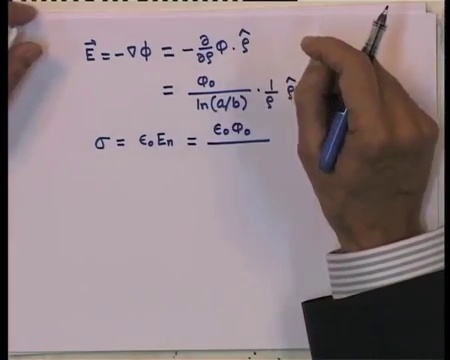 E⃗ = -∇Φ = - ∂/∂ρ Φ · ρ̂
= Φ₀ / ln(a/b) · 1/ρ ρ̂
σ = ε₀ Eₙ = ε₀ Φ₀